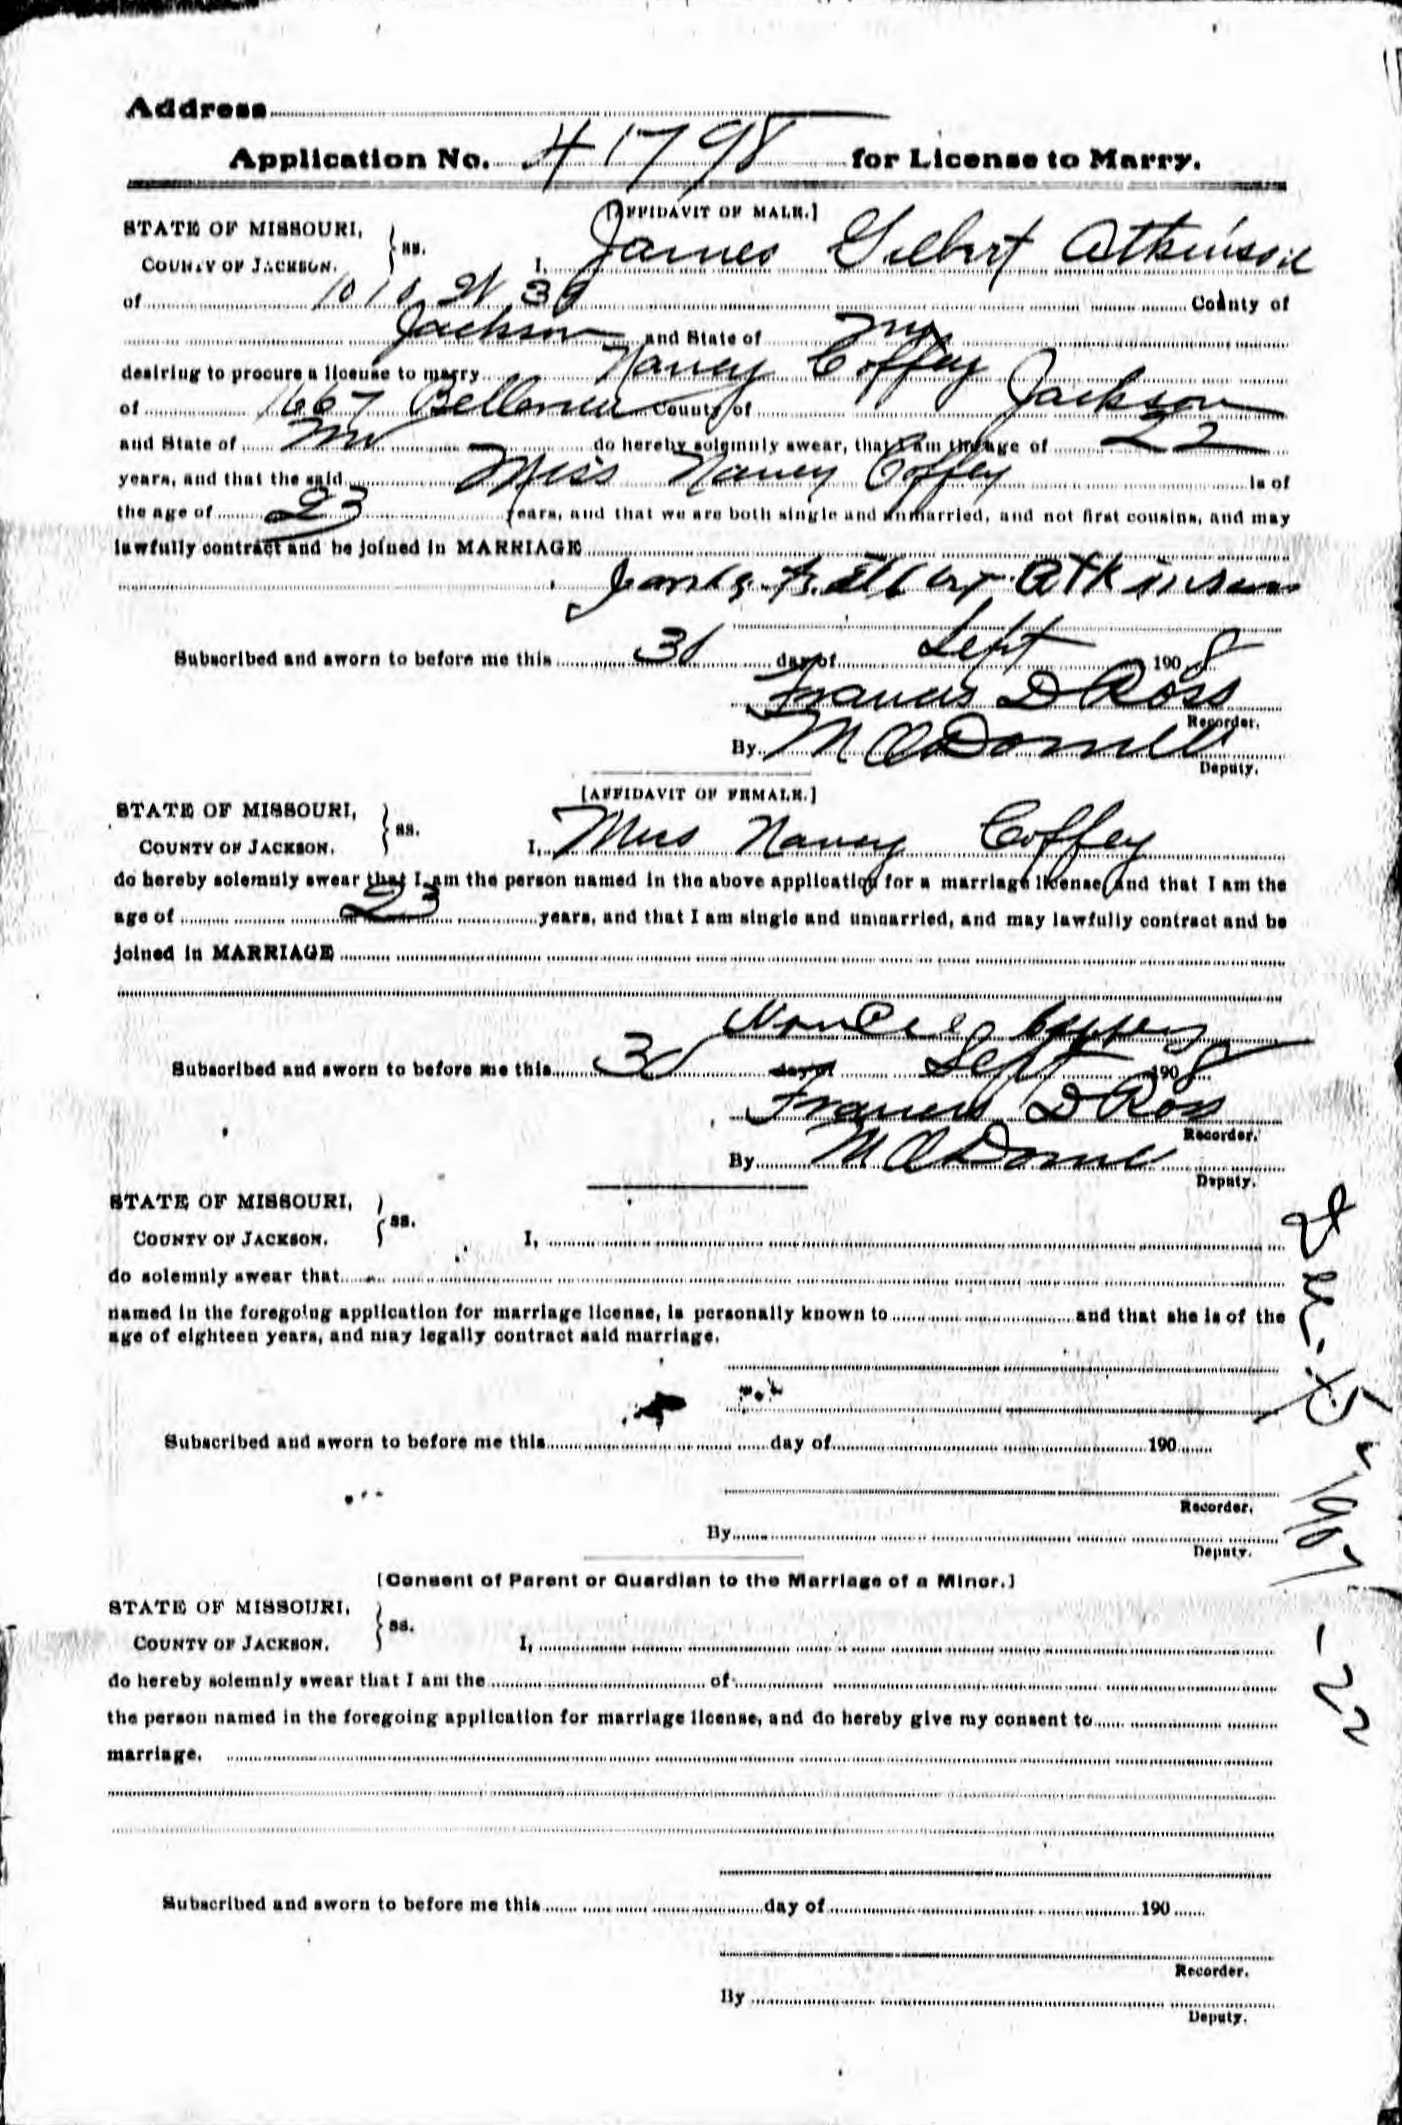 Address
Application No. 41798 for License to Marry.
[AFFIDAVIT OF MALE.]
STATE OF MISSOURI, } ss.
COUNTY OF JACKSON. I, James Gilbert Atkinson
of 1010 W 39 County of
Jackson and State of Mo
desiring to procure a license to marry Nancy Coffey
of 1667 Belleview County of Jackson
and State of Mo do hereby solemnly swear, that I am the age of 22
years, and that the said Miss Nancy Coffey is of
the age of 23 years, and that we are both single and unmarried, and not first cousins, and may
lawfully contract and be joined in MARRIAGE
James Gilbert Atkinson
Subscribed and sworn to before me this 30 day of Sept 1908
Francis D Ross
Recorder.
By M A Donnell
Deputy.
[AFFIDAVIT OF FEMALE.]
STATE OF MISSOURI, } ss.
COUNTY OF JACKSON. I, Miss Nancy Coffey
do hereby solemnly swear that I am the person named in the above application for a marriage license, and that I am the
age of 23 years, and that I am single and unmarried, and may lawfully contract and be
joined in MARRIAGE
Coffey
Subscribed and sworn to before me this 30 day of Sept 1908
Francis D Ross
Recorder.
By M A Donnell
Deputy.
STATE OF MISSOURI, } ss.
COUNTY OF JACKSON. I,
do solemnly swear that
named in the foregoing application for marriage license, is personally known to and that she is of the
age of eighteen years, and may legally contract said marriage.
Subscribed and sworn to before me this day of 190
Recorder.
By
Deputy.
[Consent of Parent or Guardian to the Marriage of a Minor.]
STATE OF MISSOURI, } ss.
COUNTY OF JACKSON. I,
do hereby solemnly swear that I am the of
the person named in the foregoing application for marriage license, and do hereby give my consent to
marriage.
Subscribed and sworn to before me this day of 190
Recorder.
By
Deputy.